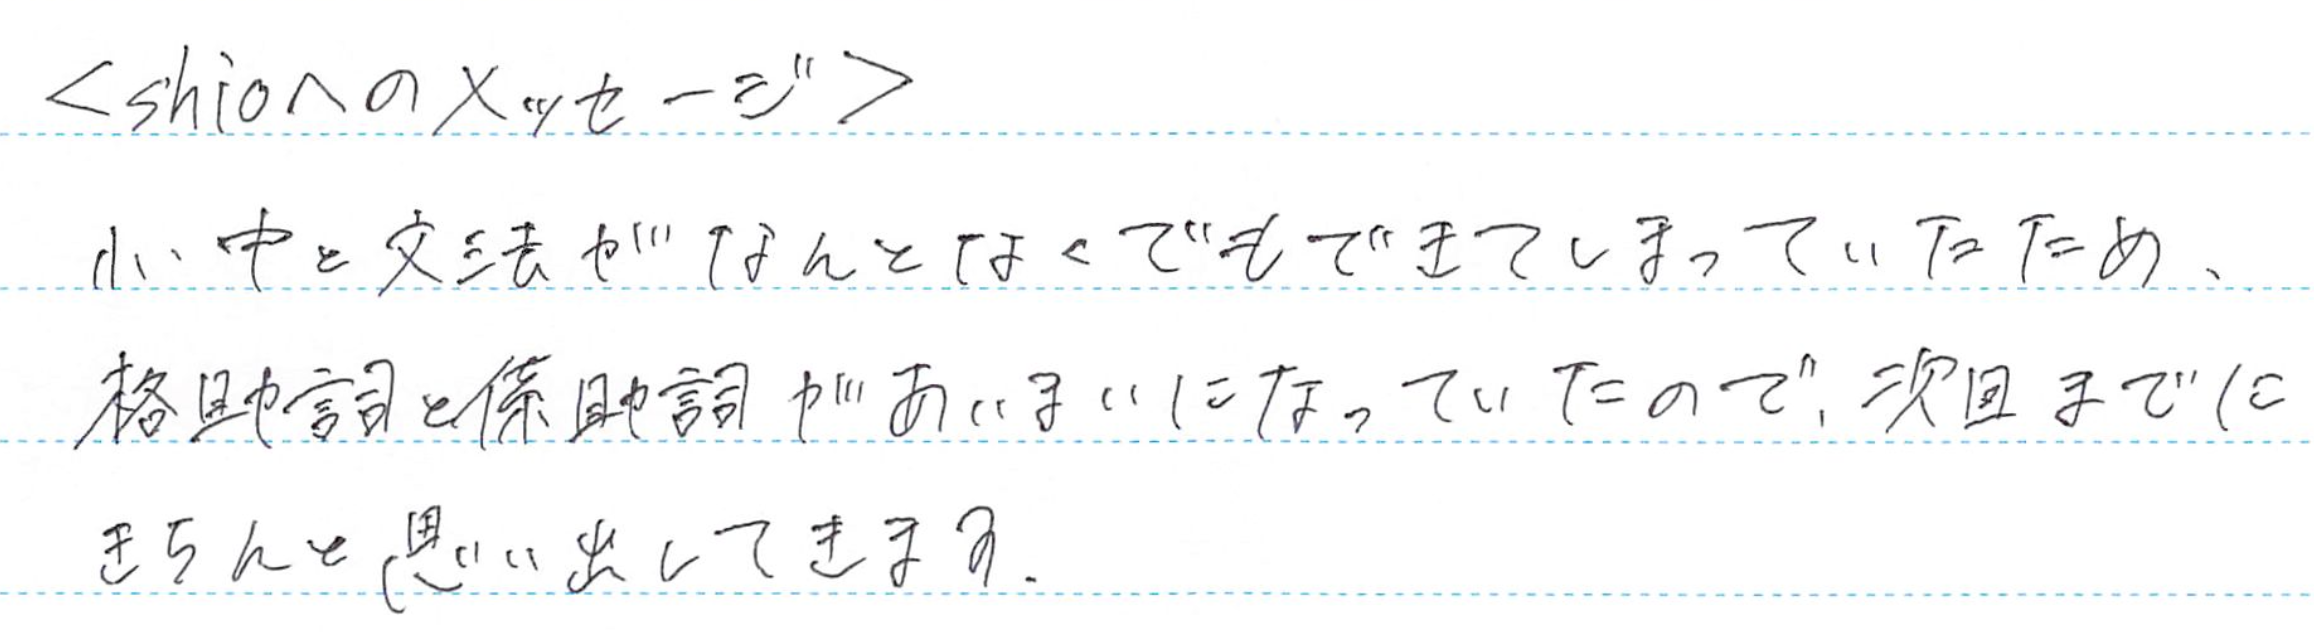 <shioへのメッセージ>
小、中と文法がなんとなくでもできてしまっていたため、
格助詞と係助詞があいまいになっていたので、次回までに
きちんと思い出してきます.